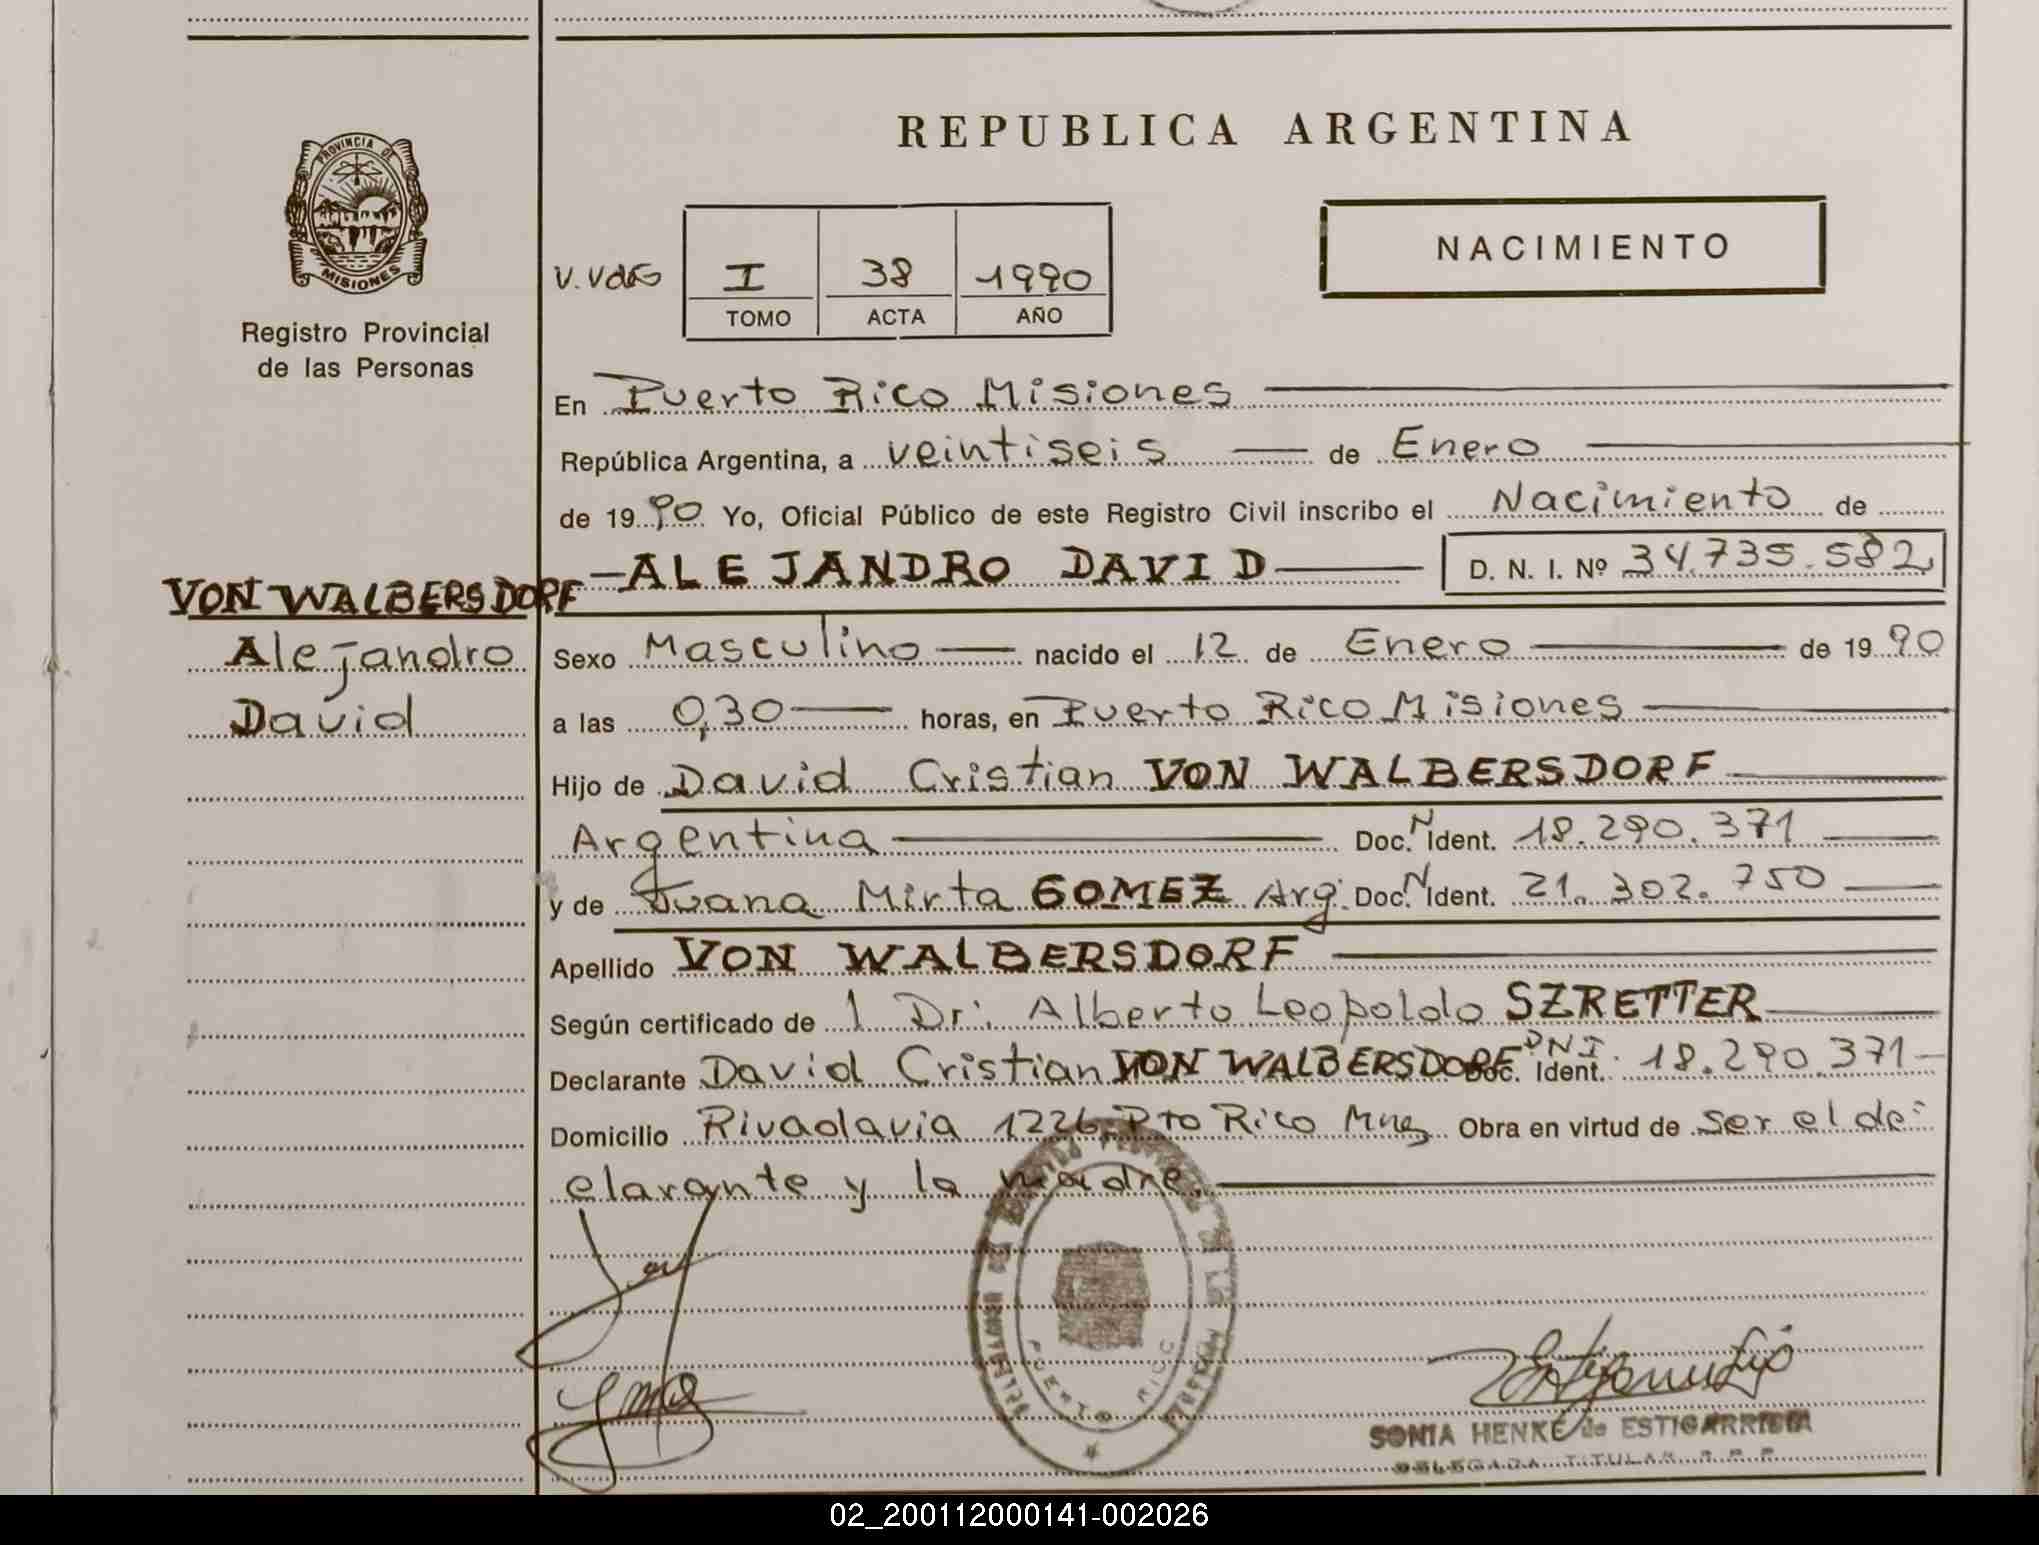 REPUBLICA ARGENTINA
PROVINCIA DE
MISIONES
Registro Provincial
de las Personas
V. VdG
I
38
1990
TOMO
ACTA
AÑO
NACIMIENTO
En Puerto Rico Misiones
República Argentina, a veintiseis de Enero
de 1990 Yo, Oficial Público de este Registro Civil inscribo el Nacimiento de
ALEJANDRO DAVID D. N. I. Nº 34.735.582
VON WALBERSDORF
Alejandro
David
Sexo Masculino nacido el 12 de Enero de 1990
a las 0,30 horas, en Puerto Rico Misiones
Hijo de David Cristian VON WALBERSDORF
Argentina Doc. N Ident. 18.290.371
y de Juana Mirta GOMEZ Arg. Doc. N Ident. 21.302.750
Apellido VON WALBERSDORF
Según certificado de 1 Dr. Alberto Leopoldo SZRETTER
Declarante David Cristian VON WALBERSDORF DNI. Doc. Ident. 18.290.371
Domicilio Rivadavia 1226 Pto Rico Mnes Obra en virtud de ser el de-
clarante y la madre.
PUERTO RICO
SONIA HENKE de ESTIGARRIBIA
DELEGADA TITULAR R.P.P.
02_200112000141-002026